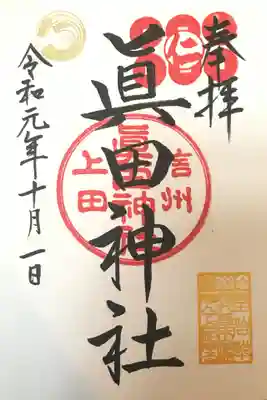 奉拝
眞田神社
信州
上田
眞田神社
令和元年十月一日